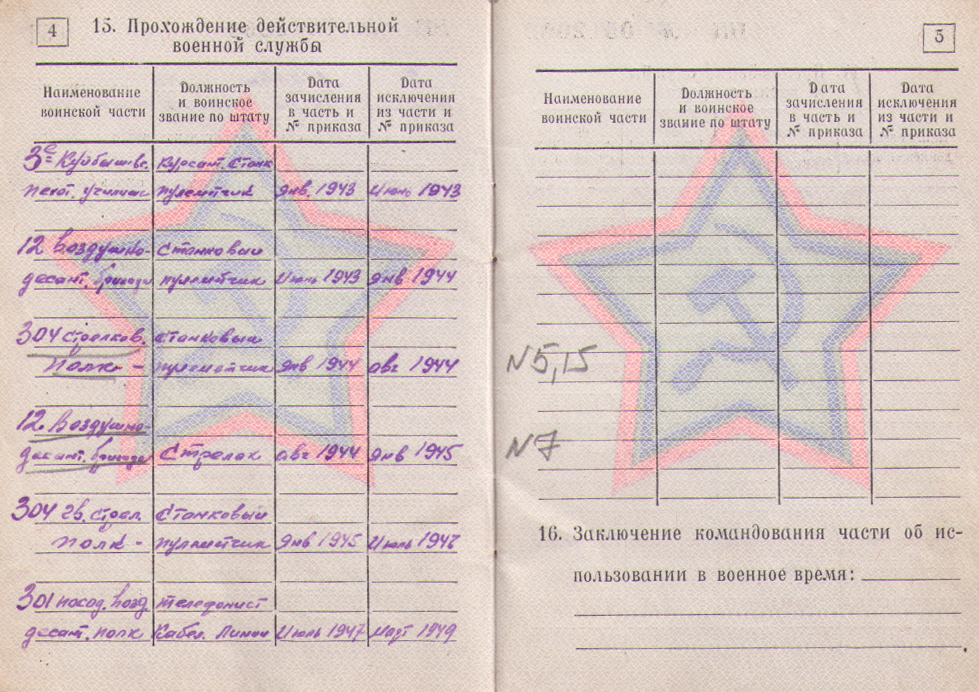 4
15. Прохождение действительной
военной службы
Наименование
воинской части
Должность
и воинское
звание по штату
Дата
зачисления
в часть и
№ приказа
Дата
исключения
из части и
№ приказа
3е Куйбышев. курсант. Станк
пехот. училищ пулеметчик янв. 1943 Июнь 1943
12 Воздушно- Станковый
десант. бригада пулеметчик Июнь 1943 янв 1944
304 стрелков. Станковый
полк - пулеметчик янв 1944 авг 1944
12. Воздушно-
десант. бригада Стрелок авг 1944 янв 1945
304 гв. стрел. Станковый
полк - пулеметчик янв 1945
301 посад. возд телефонист
десант. полк Кабел. Линии Июль 1947 Март 1949
5
Наименование
воинской части
Должность
и воинское
звание по штату
Дата
зачисления
в часть и
№ приказа
Дата
исключения
из части и
№ приказа
N5,15
N7
16. Заключение командования части об ис-
пользовании в военное время: